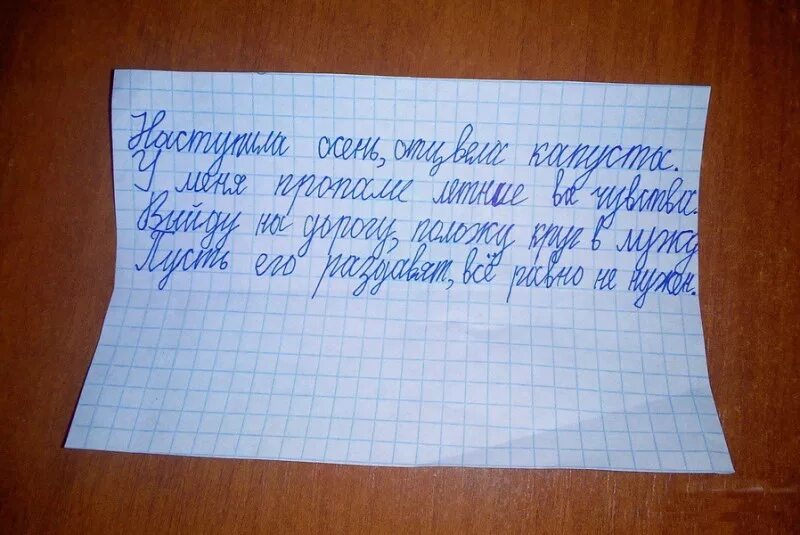 Наступила осень, отцвела капуста.
У меня пропали летние все чувства.
Выйду на дорогу, положу круг в лужу
Пусть его раздавят, всё равно не нужен.